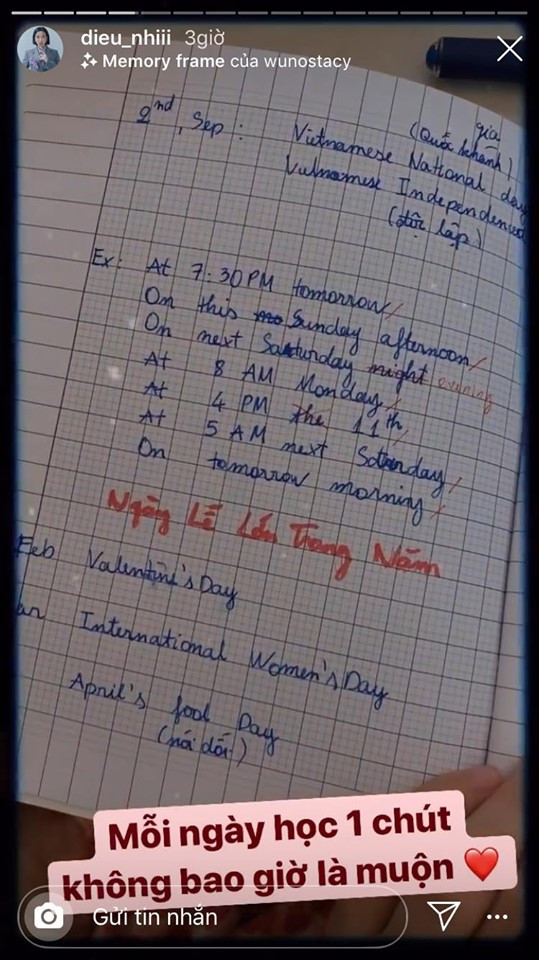 dieu_nhiii 3giờ
Memory frame của wunostacy
gia
2nd, Sep : Vietnamese National day
(Quốc khánh)
Vietnamese Independence
(độc lập)
Ex: At 7:30PM tomorrow/
On this Sunday afternoon/
On next Saturday night evening
At 8 AM Monday/
At 4 PM the 11th/
At 5 AM next Saturday/
On tomorrow morning/
Ngày Lễ Lớn Trong Năm
Feb Valentine's Day
International Women's Day
April's fool Day
(nói dối)
Mỗi ngày học 1 chút
không bao giờ là muộn
Gửi tin nhắn